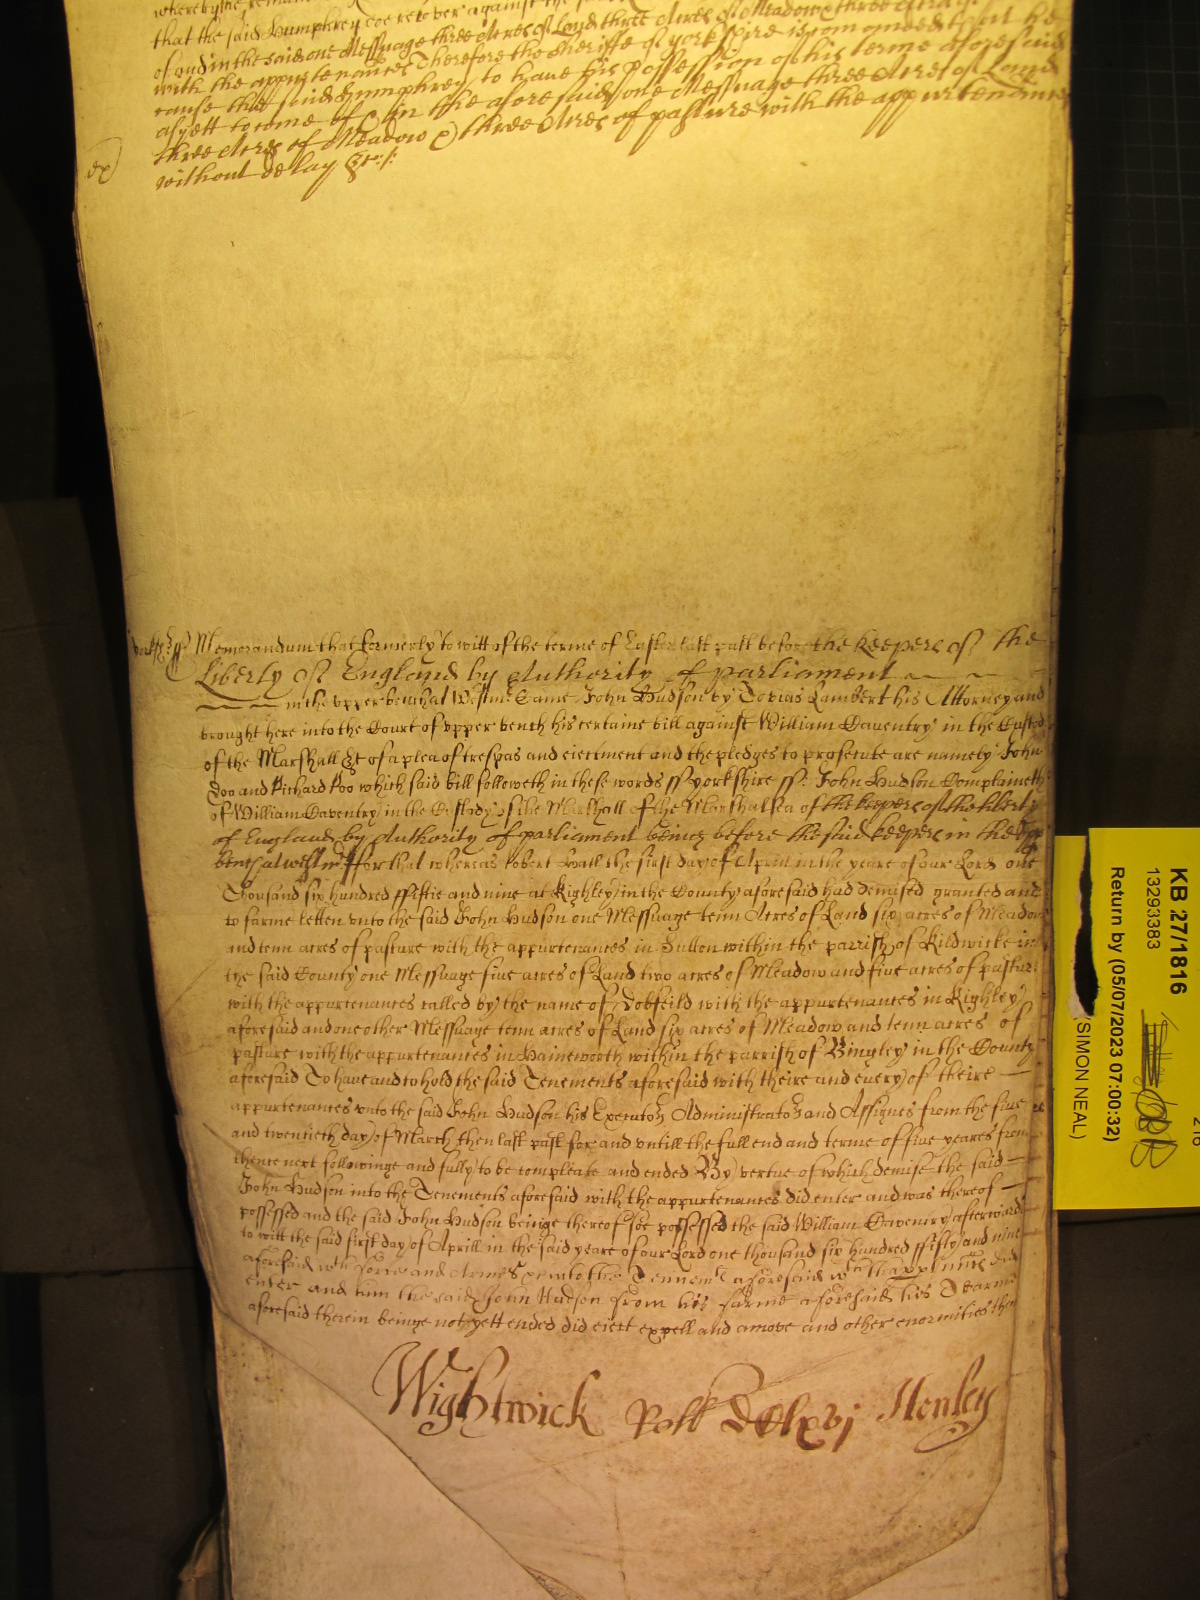 whereby the remain
that the said Humphrey doe recover against the said
of and in the said one Messuage three Acres of Land three Acres of Meadow & three Acres
with the appurtenances Therefore the sheriffe of yorkeshire is comanded that he
cause the said Humphrey to have his possession of his terme aforesaid
as yett to come of & in the aforesaid one Messuage three Acres of Land
three Acres of Meadow & three Acres of pasture with the appurtenances
without delay &c:
ex)
Yorksh: ss Memorandum that formerly to witt of the terme of Easter last past before the keepers of the
Liberty of England by Authority of parliament
in the upper bench at Westmr: Came John Hudson by Tobias Lambert his Attorney and
brought here into the Court of upper bench his certaine bill against William Daventry in the Custody
of the Marshall &c of a plea of trespas and eiectment and the pledges to prosecute are namely John
Doo and Richard Roo which said bill followeth in these words ss yorkshire ss: John Hudson Complaineth
of William Daventry in the Custody of the Marshall of the Marshalsea of the keepers of the liberty
of England by Authority of parliament being before the said keepers in the upp
bench at westmr ffor that whereas Robert Hall the first day of Aprill in the yeare of our Lord one
Thousand six hundred ffiftie and nine at Kighley in the County aforesaid had demised granted and
to farme letten unto the said John Hudson one Messuage tenn Acres of Land six acres of Meadow
and tenn acres of pasture with the appurtenances in Sutton within the parrish of Kildwicke in
the said County one Messuage five acres of Land two acres of Meadow and five acres of pasture
with the appurtenances called by the name of Dobfeild with the appurtenances in Kighley
aforesaid and one other Messuage tenn acres of Land six acres of Meadow and tenn acres of
pasture with the appurtenances in Haineworth within the parrish of Bingley in the County
aforesaid To have and to hold the said Tenements aforesaid with theire and every of theire
appurtenances unto the said John Hudson his Executors Administrators and Assignes from the five
and twentieth day of March then last past for and untill the full end and terme of five yeares from
thence next followinge and fully to be compleate and ended By vertue of which demise the said
John Hudson into the Tenements aforesaid with the appurtenances did enter and was thereof
possessed and the said John Hudson beinge thereof soe possessed the said William Daventry afterwards
to witt the said first day of Aprill in the said yeare of our Lord one thousand six hundred ffifty and nine
aforesaid wth force and Armes &c into the Tennemts aforesaid wth th appurtences did
enter and him the said John Hudson from his farme aforesaid his Tearme
aforesaid therein beinge not yett ended did eiect expell and amove and other enormities then
Wightwick Roll DClxvj Henley
KB 27/1816
13293383
Return by (05/07/2023 07:00:32)
(SIMON NEAL)